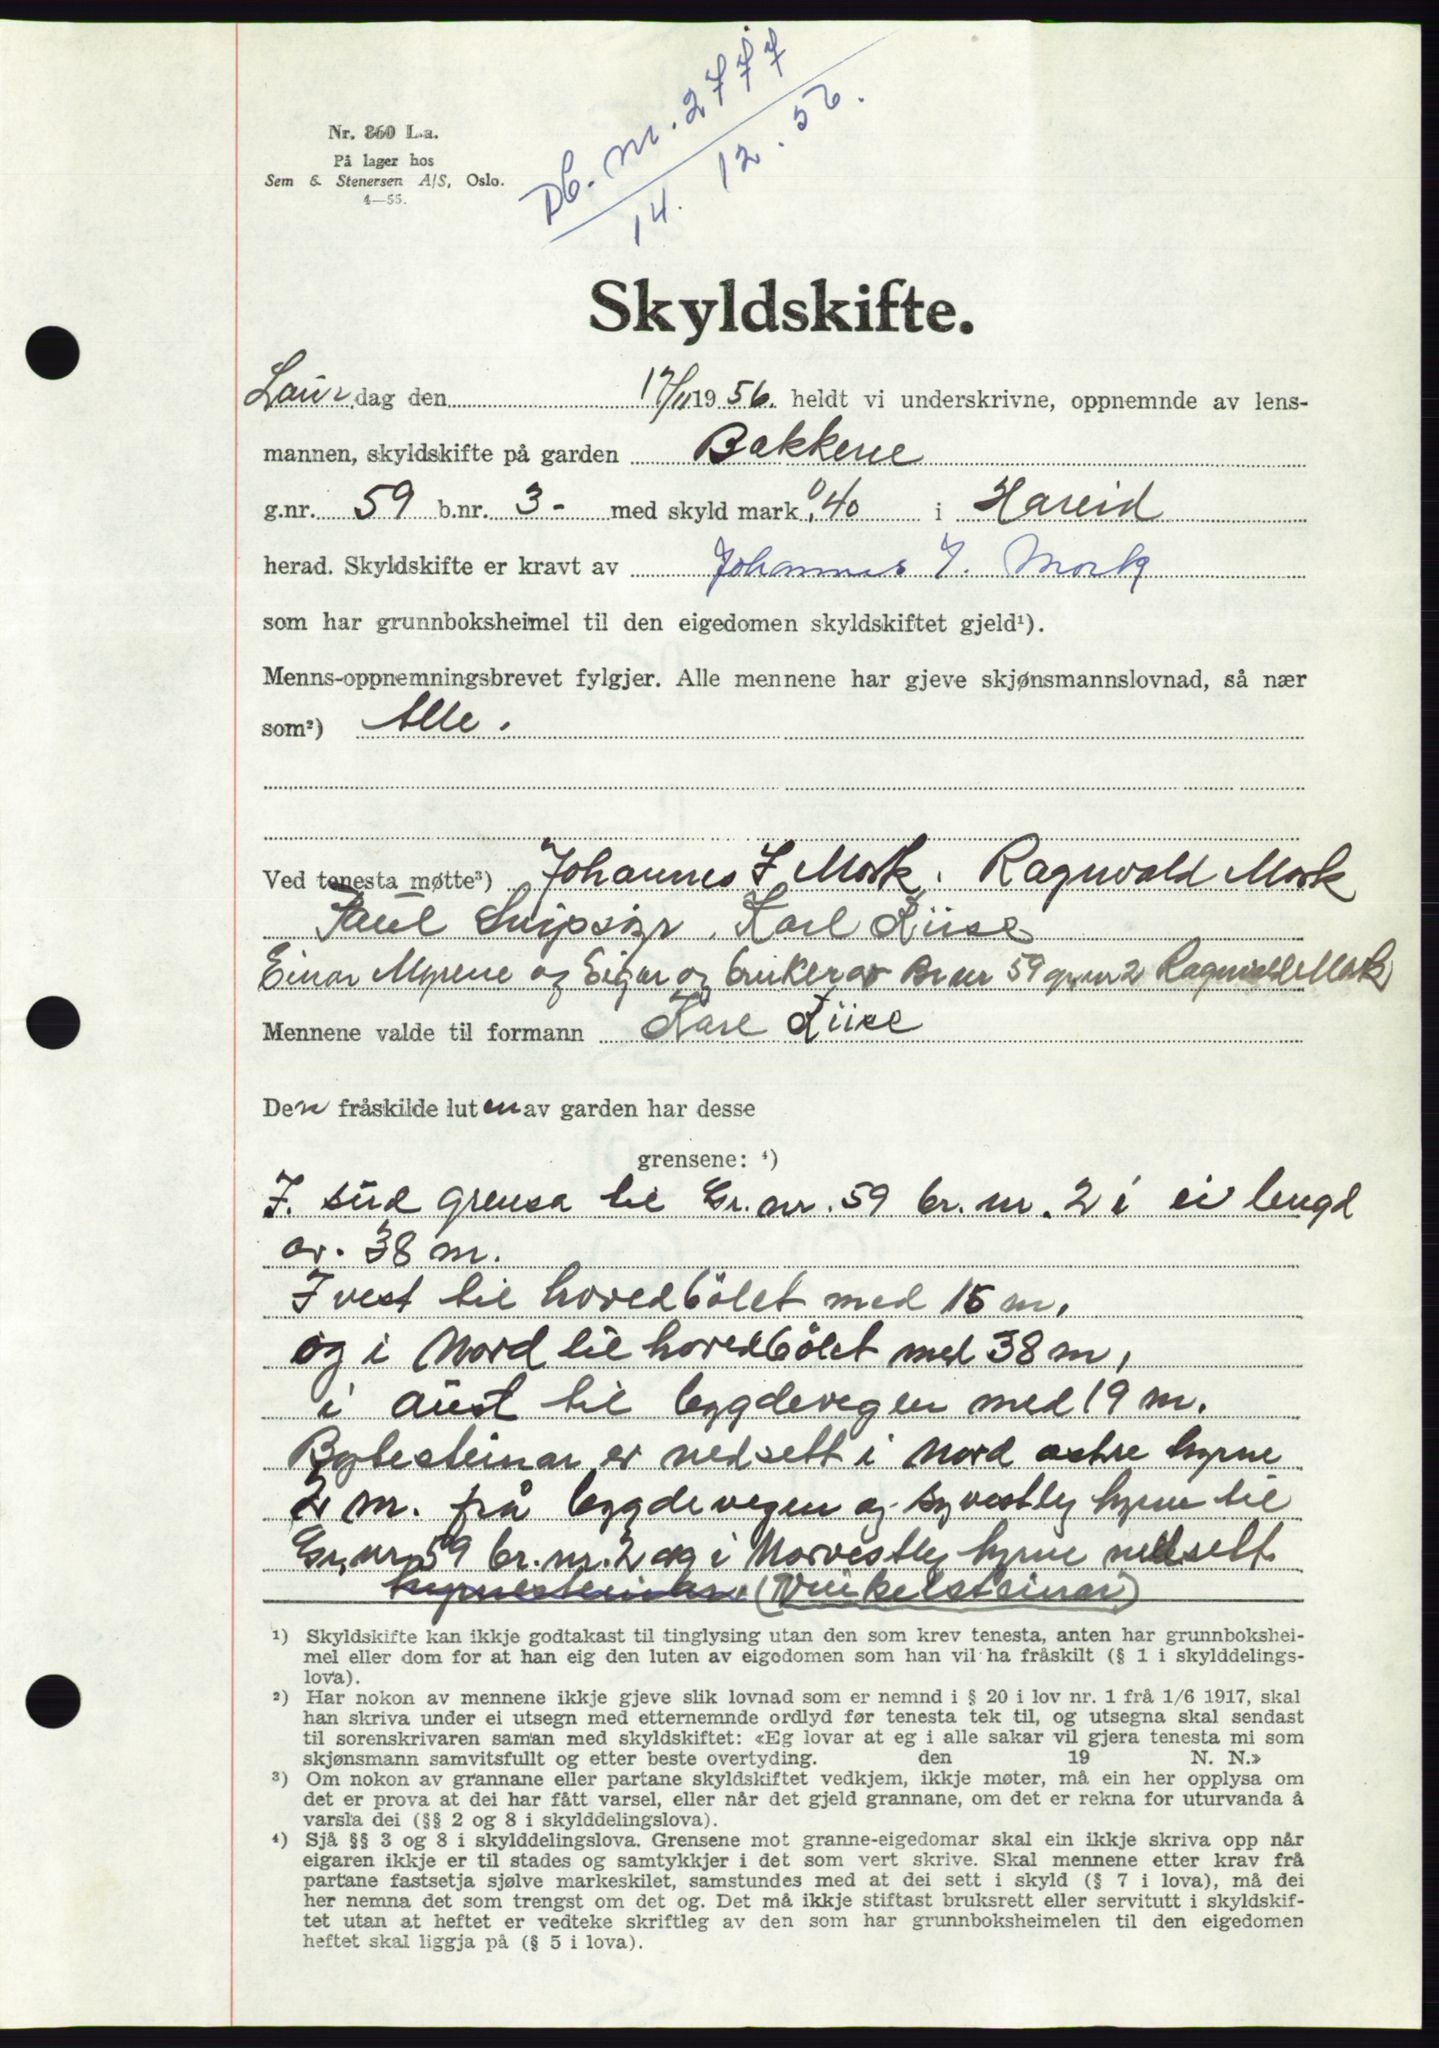 Db. nr. 2777
14. 12. 56.
Nr. 860 L.a.
På lager hos
Sem & Stenersen A/S, Oslo.
4—55.
Skyldskifte.
Laur dag den 17/11 1956. heldt vi underskrivne, oppnemnde av lens-
mannen, skyldskifte på garden Bakkene
g.nr. 59 b.nr. 3- med skyld mark 0,40 i Hareid
herad. Skyldskifte er kravt av Johannes J. Mork
som har grunnboksheimel til den eigedomen skyldskiftet gjeld¹).
Menns-oppnemningsbrevet fylgjer. Alle mennene har gjeve skjønsmannslovnad, så nær
som²) Alle.
Ved tenesta møtte³) Johannes J Mork. Ragnvald Mork
Paul Snipsøyr. Karl Liise
Einar Myrene og Eigar og brukerav Br nr 59 gr.nr 2 Ragnvald Mork
Mennene valde til formann Karl Liise
Den fråskilde luten av garden har desse
grensene: ⁴)
I. süd grensa til Gr. nr. 59 br. nr. 2 i ei lengd
av. 38 m.
I vest til hovedbölet med 15 m,
og i Nord til hovedbölet med 38 m,
i aust til bygdevegen med 19 m.
Bytesteinar er nedsett i Nord østre hyrne
2 m. frå bygdevegen og syvestleg hyrne til
Gr. nr 59 br. nr. 2 og i Norvestleg hyrne nedsett
hyrnesteinar (Vinkelsteinar)
¹) Skyldskifte kan ikkje godtakast til tinglysing utan den som krev tenesta, anten har grunnbokshei-
mel eller dom for at han eig den luten av eigedomen som han vil ha fråskilt (§ 1 i skylddelings-
lova).
²) Har nokon av mennene ikkje gjeve slik lovnad som er nemnd i § 20 i lov nr. 1 frå 1/6 1917, skal
han skriva under ei utsegn med etternemnde ordlyd før tenesta tek til, og utsegna skal sendast
til sorenskrivaren saman med skyldskiftet: «Eg lovar at eg i alle sakar vil gjera tenesta mi som
skjønsmann samvitsfullt og etter beste overtyding. den 19 N. N.»
³) Om nokon av grannane eller partane skyldskiftet vedkjem, ikkje møter, må ein her opplysa om
det er prova at dei har fått varsel, eller når det gjeld grannane, om det er rekna for uturvanda å
varsla dei (§§ 2 og 8 i skylddelingslova).
⁴) Sjå §§ 3 og 8 i skylddelingslova. Grensene mot granne-eigedomar skal ein ikkje skriva opp når
eigaren ikkje er til stades og samtykkjer i det som vert skrive. Skal mennene etter krav frå
partane fastsetja sjølve markeskilet, samstundes med at dei sett i skyld (§ 7 i lova), må dei
her nemna det som trengst om det og. Det må ikkje stiftast bruksrett eller servitutt i skyldskif-
tet utan at heftet er vedteke skriftleg av den som har grunnboksheimelen til den eigedomen
heftet skal liggja på (§ 5 i lova).